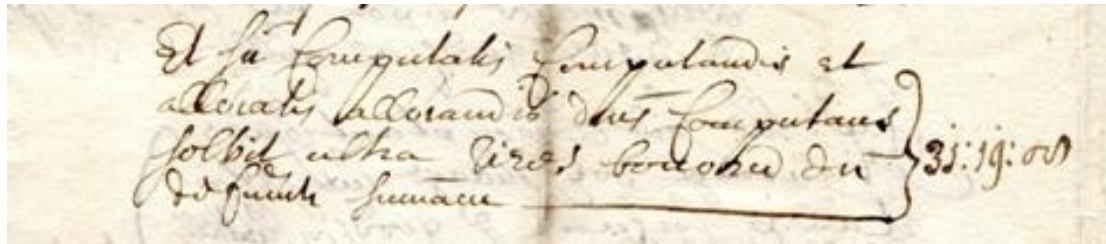 Et sic Computatis Computandis et
allocatis allocandis dnus Computans
solvit ultra vires bonorum dni
defuncti summam 31: 19: 08